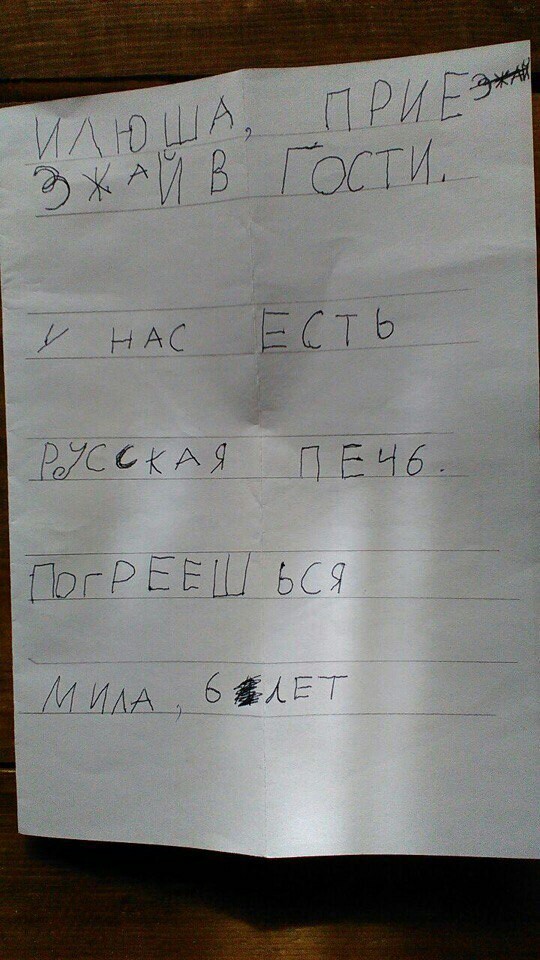 ИЛЮША, ПРИЕ
ЗЖАЙ В ГОСТИ.
У НАС ЕСТЬ
РУССКАЯ ПЕЧЬ.
ПОГРЕЕШЬСЯ
МИЛА, 6 ЛЕТ